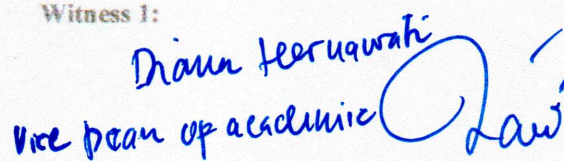 Witness 1:
Diana Hernawati
Vice Dean of academic